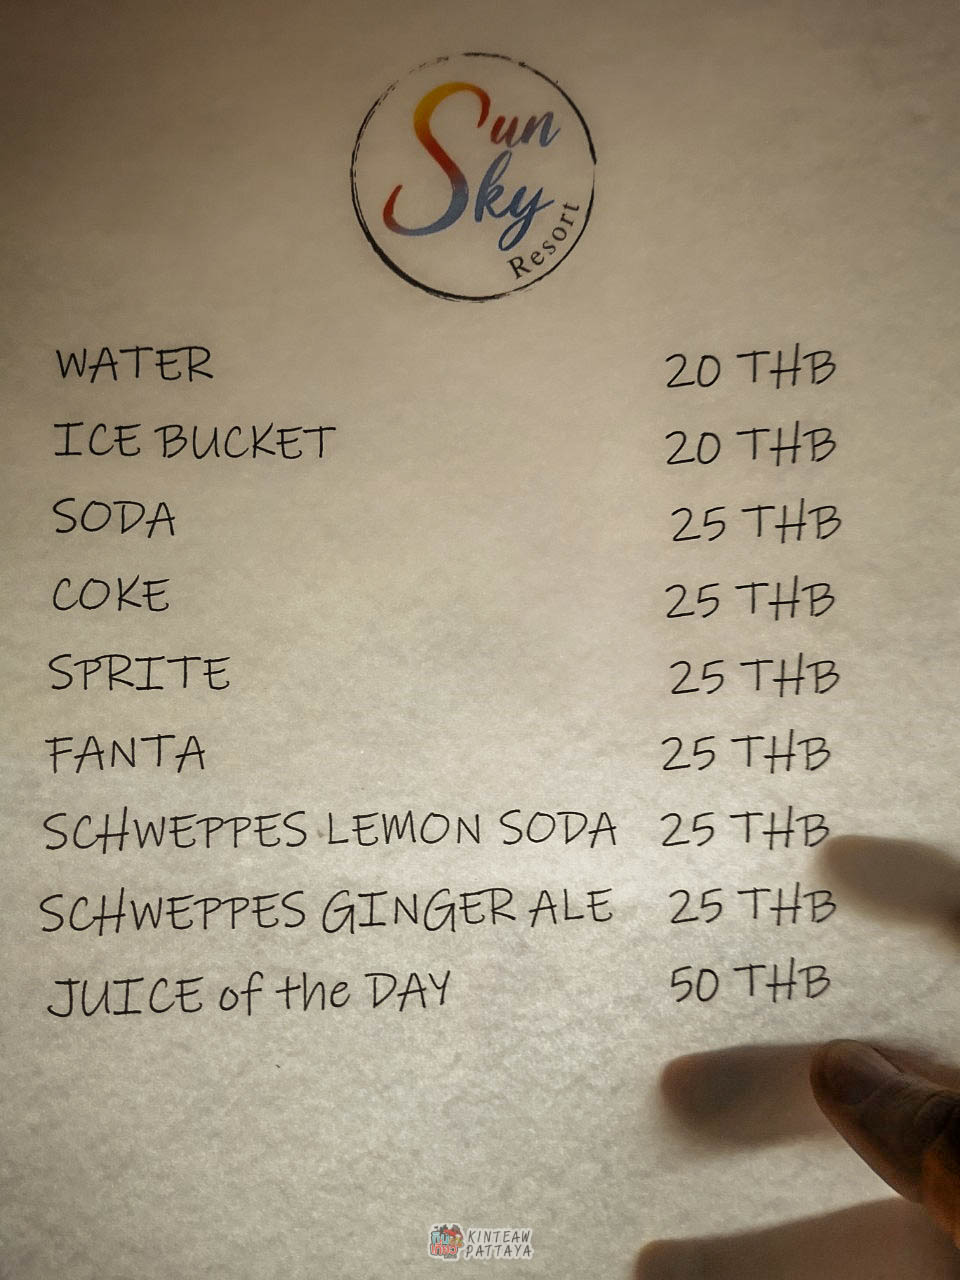 Sun
Sky
Resort
WATER 20 THB
ICE BUCKET 20 THB
SODA 25 THB
COKE 25 THB
SPRITE 25 THB
FANTA 25 THB
SCHWEPPES LEMON SODA 25 THB
SCHWEPPES GINGER ALE 25 THB
JUICE of the DAY 50 THB
กินเที่ยว KINTEAW
PATTAYA